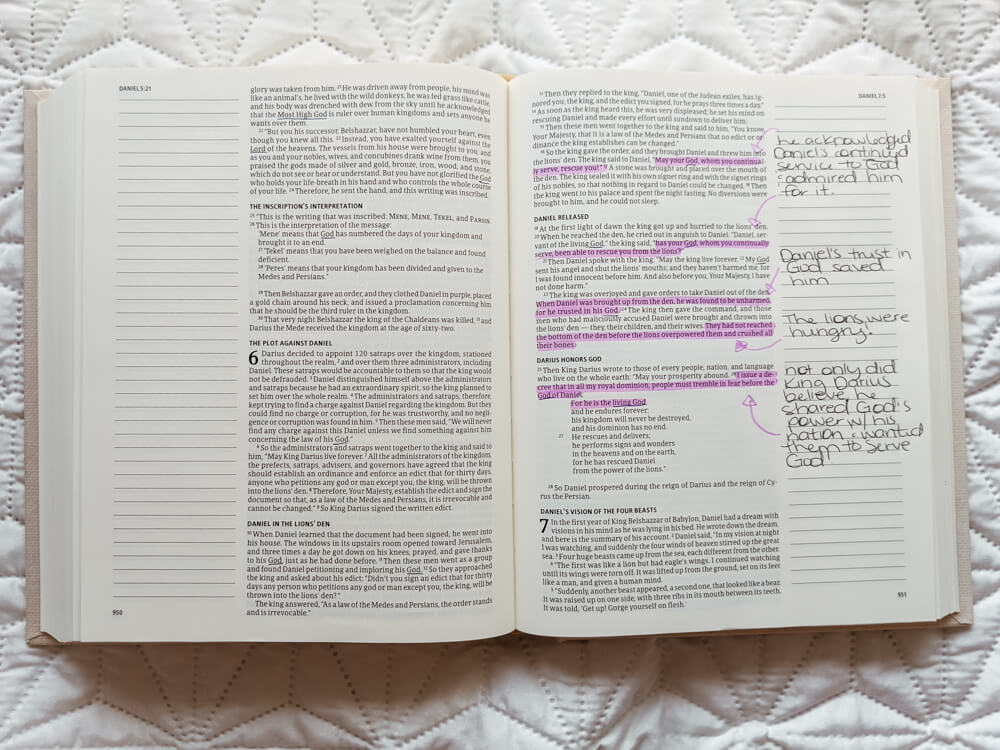 DANIEL 5:21
glory was taken from him. ²¹ He was driven away from people, his mind was
like an animal's, he lived with the wild donkeys, he was fed grass like cattle,
and his body was drenched with dew from the sky until he acknowledged
that the Most High God is ruler over human kingdoms and sets anyone he
wants over them.
²² "But you his successor, Belshazzar, have not humbled your heart, even
though you knew all this. ²³ Instead, you have exalted yourself against the
Lord of the heavens. The vessels from his house were brought to you, and
as you and your nobles, wives, and concubines drank wine from them, you
praised the gods made of silver and gold, bronze, iron, wood, and stone,
which do not see or hear or understand. But you have not glorified the God
who holds your life-breath in his hand and who controls the whole course
of your life. ²⁴ Therefore, he sent the hand, and this writing was inscribed.
THE INSCRIPTION'S INTERPRETATION
²⁵ "This is the writing that was inscribed: MENE, MENE, TEKEL, and PARSIN.
²⁶ This is the interpretation of the message:
'Mene' means that God has numbered the days of your kingdom and
brought it to an end.
²⁷ 'Tekel' means that you have been weighed on the balance and found
deficient.
²⁸ 'Peres' means that your kingdom has been divided and given to the
Medes and Persians."
²⁹ Then Belshazzar gave an order, and they clothed Daniel in purple, placed
a gold chain around his neck, and issued a proclamation concerning him
that he should be the third ruler in the kingdom.
³⁰ That very night Belshazzar the king of the Chaldeans was killed, ³¹ and
Darius the Mede received the kingdom at the age of sixty-two.
THE PLOT AGAINST DANIEL
6 Darius decided to appoint 120 satraps over the kingdom, stationed
throughout the realm, ² and over them three administrators, including
Daniel. These satraps would be accountable to them so that the king would
not be defrauded. ³ Daniel distinguished himself above the administrators
and satraps because he had an extraordinary spirit, so the king planned to
set him over the whole realm. ⁴ The administrators and satraps, therefore,
kept trying to find a charge against Daniel regarding the kingdom. But they
could find no charge or corruption, for he was trustworthy, and no negli-
gence or corruption was found in him. ⁵ Then these men said, "We will never
find any charge against this Daniel unless we find something against him
concerning the law of his God."
⁶ So the administrators and satraps went together to the king and said to
him, "May King Darius live forever. ⁷ All the administrators of the kingdom,
the prefects, satraps, advisers, and governors have agreed that the king
should establish an ordinance and enforce an edict that for thirty days,
anyone who petitions any god or man except you, the king, will be thrown
into the lions' den. ⁸ Therefore, Your Majesty, establish the edict and sign the
document so that, as a law of the Medes and Persians, it is irrevocable and
cannot be changed." ⁹ So King Darius signed the written edict.
DANIEL IN THE LIONS' DEN
¹⁰ When Daniel learned that the document had been signed, he went into
his house. The windows in its upstairs room opened toward Jerusalem,
and three times a day he got down on his knees, prayed, and gave thanks
to his God, just as he had done before. ¹¹ Then these men went as a group
and found Daniel petitioning and imploring his God. ¹² So they approached
the king and asked about his edict: "Didn't you sign an edict that for thirty
days any person who petitions any god or man except you, the king, will be
thrown into the lions' den?"
The king answered, "As a law of the Medes and Persians, the order stands
and is irrevocable."
950
DANIEL 7:5
¹³ Then they replied to the king, "Daniel, one of the Judean exiles, has ig-
nored you, the king, and the edict you signed, for he prays three times a day."
¹⁴ As soon as the king heard this, he was very displeased; he set his mind on
rescuing Daniel and made every effort until sundown to deliver him.
¹⁵ Then these men went together to the king and said to him, "You know,
Your Majesty, that it is a law of the Medes and Persians that no edict or or-
dinance the king establishes can be changed."
¹⁶ So the king gave the order, and they brought Daniel and threw him into
the lions' den. The king said to Daniel, "May your God, whom you continual-
ly serve, rescue you!" ¹⁷ A stone was brought and placed over the mouth of
the den. The king sealed it with his own signet ring and with the signet rings
of his nobles, so that nothing in regard to Daniel could be changed. ¹⁸ Then
the king went to his palace and spent the night fasting. No diversions were
brought to him, and he could not sleep.
DANIEL RELEASED
¹⁹ At the first light of dawn the king got up and hurried to the lions' den.
²⁰ When he reached the den, he cried out in anguish to Daniel. "Daniel, ser-
vant of the living God," the king said, "has your God, whom you continually
serve, been able to rescue you from the lions?"
²¹ Then Daniel spoke with the king: "May the king live forever. ²² My God
sent his angel and shut the lions' mouths; and they haven't harmed me, for
I was found innocent before him. And also before you, Your Majesty, I have
not done harm."
²³ The king was overjoyed and gave orders to take Daniel out of the den.
When Daniel was brought up from the den, he was found to be unharmed,
for he trusted in his God. ²⁴ The king then gave the command, and those
men who had maliciously accused Daniel were brought and thrown into
the lions' den — they, their children, and their wives. They had not reached
the bottom of the den before the lions overpowered them and crushed all
their bones.
DARIUS HONORS GOD
²⁵ Then King Darius wrote to those of every people, nation, and language
who live on the whole earth: "May your prosperity abound. ²⁶ I issue a de-
cree that in all my royal dominion, people must tremble in fear before the
God of Daniel:
For he is the living God,
and he endures forever;
his kingdom will never be destroyed,
and his dominion has no end.
²⁷ He rescues and delivers;
he performs signs and wonders
in the heavens and on the earth,
for he has rescued Daniel
from the power of the lions."
²⁸ So Daniel prospered during the reign of Darius and the reign of Cy-
rus the Persian.
DANIEL'S VISION OF THE FOUR BEASTS
7 In the first year of King Belshazzar of Babylon, Daniel had a dream with
visions in his mind as he was lying in his bed. He wrote down the dream,
and here is the summary of his account. ² Daniel said, "In my vision at night
I was watching, and suddenly the four winds of heaven stirred up the great
sea. ³ Four huge beasts came up from the sea, each different from the other.
⁴ "The first was like a lion but had eagle's wings. I continued watching
until its wings were torn off. It was lifted up from the ground, set on its feet
like a man, and given a human mind.
⁵ "Suddenly, another beast appeared, a second one, that looked like a bear.
It was raised up on one side, with three ribs in its mouth between its teeth.
It was told, 'Get up! Gorge yourself on flesh.'
951
he acknowledged
Daniel's continued
service to God
& admired him
for it.
Daniel's trust in
God saved
him
The lions were
hungry!
not only did
King Darius
believe, he
shared God's
power w/ his
nation & wanted
them to serve
God!